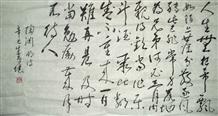 人生無根蒂飄
如陌上塵分散逐風
轉此已非常身落地為
兄弟何必骨肉
親得歡當作樂
斗酒聚比鄰
盛年不重來一日
難再晨及時
當勉勵歲月
不待人
陶淵明詩